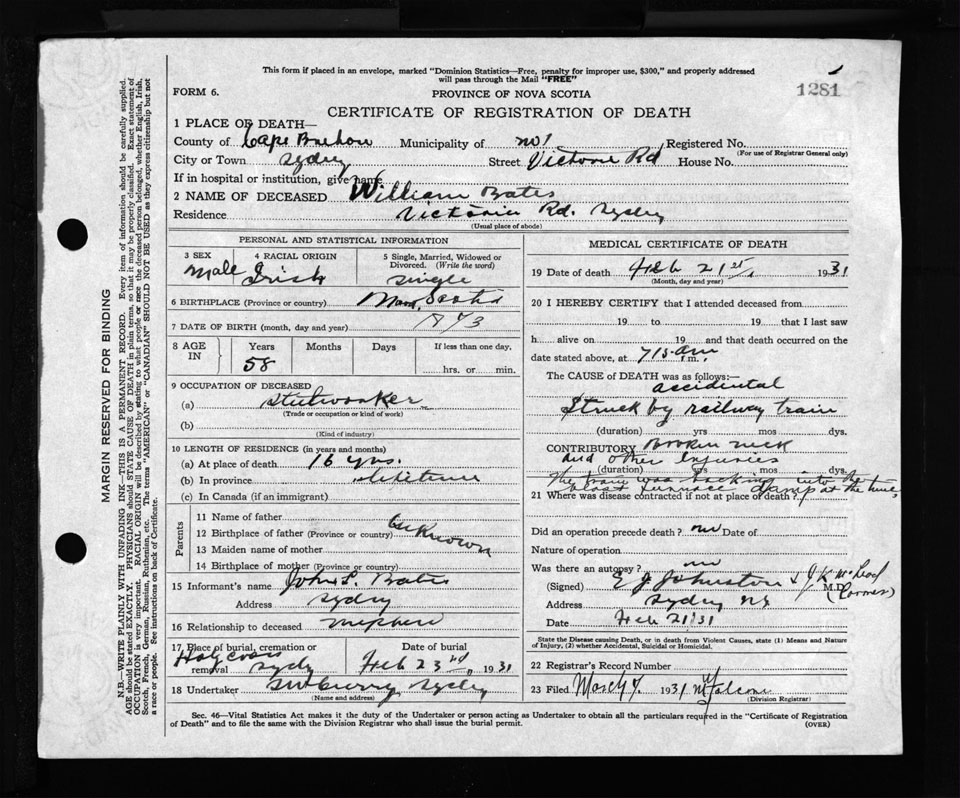 This form if placed in an envelope, marked "Dominion Statistics—Free, penalty for improper use, $300," and properly addressed
will pass through the Mail "FREE"
1281
FORM 6.
PROVINCE OF NOVA SCOTIA
CERTIFICATE OF REGISTRATION OF DEATH
1 PLACE OF DEATH—
County of Cape Breton Municipality of No 1 Registered No.
(For use of Registrar General only)
City or Town Sydney Street Victoria Rd House No.
If in hospital or institution, give name
2 NAME OF DECEASED William Bates
Residence Victoria Rd. Sydney
(Usual place of abode)
PERSONAL AND STATISTICAL INFORMATION
3 SEX 4 RACIAL ORIGIN 5 Single, Married, Widowed or
Divorced. (Write the word)
Male Irish Single
6 BIRTHPLACE (Province or country) Nova Scotia
7 DATE OF BIRTH (month, day and year) 1873
8 AGE IN Years Months Days If less than one day.
58 hrs. or min.
9 OCCUPATION OF DECEASED
(a) Steelworker
(Trade or occupation or kind of work)
(b)
(Kind of industry)
10 LENGTH OF RESIDENCE (in years and months)
(a) At place of death 16 yrs.
(b) In province Lifetime
(c) In Canada (if an immigrant)
Parents
11 Name of father
12 Birthplace of father (Province or country) Unknown
13 Maiden name of mother
14 Birthplace of mother (Province or country)
15 Informant's name John L. Bates
Address Sydney
16 Relationship to deceased nephew
17 Place of burial, cremation or removal Date of burial
Holy Cross Sydney Feb 23rd, 1931
18 Undertaker Sydney
(Name and address)
MEDICAL CERTIFICATE OF DEATH
19 Date of death Feb 21st, 1931
(Month, day and year)
20 I HEREBY CERTIFY that I attended deceased from
19 to 19 that I last saw
h alive on 19 and that death occurred on the
date stated above, at 7 15 am m.
The CAUSE of DEATH was as follows:—
accidental
Struck by railway train
(duration) yrs mos dys.
CONTRIBUTORY Broken neck
and other Injuries
(duration) yrs mos dys.
The train was backing into the
blast furnace dump at the time,
21 Where was disease contracted if not at place of death?
Did an operation precede death? no Date of
Nature of operation
Was there an autopsy? no
(Signed) E J Johnstone & J K McLeod M.D.
(Coroner)
Address Sydney NS
Date Feb 21/31
State the Disease causing Death, or in death from Violent Causes, state (1) Means and Nature
of Injury, (2) whether Accidental, Suicidal or Homicidal.
22 Registrar's Record Number
23 Filed March 7, 1931
(Division Registrar)
Sec. 46—Vital Statistics Act makes it the duty of the Undertaker or person acting as Undertaker to obtain all the particulars required in the "Certificate of Registration
of Death" and to file the same with the Division Registrar who shall issue the burial permit.
(OVER)
MARGIN RESERVED FOR BINDING
N.B.—WRITE PLAINLY WITH UNFADING INK—THIS IS A PERMANENT RECORD. Every item of information should be carefully supplied.
AGE should be stated EXACTLY. PHYSICIANS should STATE CAUSE OF DEATH in plain terms, so that it may be properly classified. Exact statement of
OCCUPATION is very important. RACIAL ORIGIN will be described by stating to what people or race the deceased person belonged, whether English, Irish,
Scotch, French, German, Russian, Ruthenian, etc. The terms "AMERICAN" or "CANADIAN" SHOULD NOT BE USED as they express citizenship but not
a race or people. See instructions on back of Certificate.